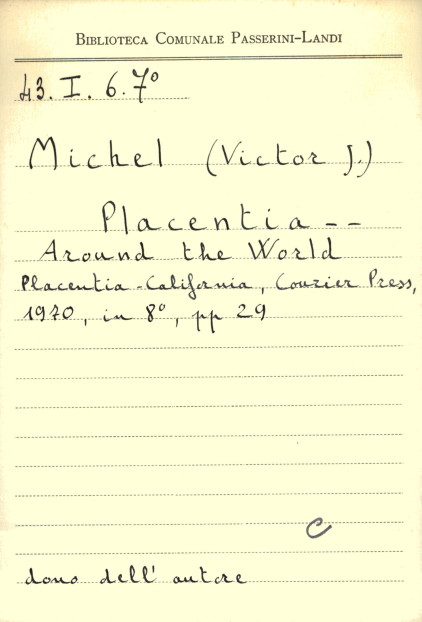 Biblioteca Comunale Passerini-Landi
43. I. 6. 7º
Michel (Victor J.)
Placentia --
Around the World
Placentia-California, Courier Press,
1970, in 8º, pp 29
C
dono dell' autore